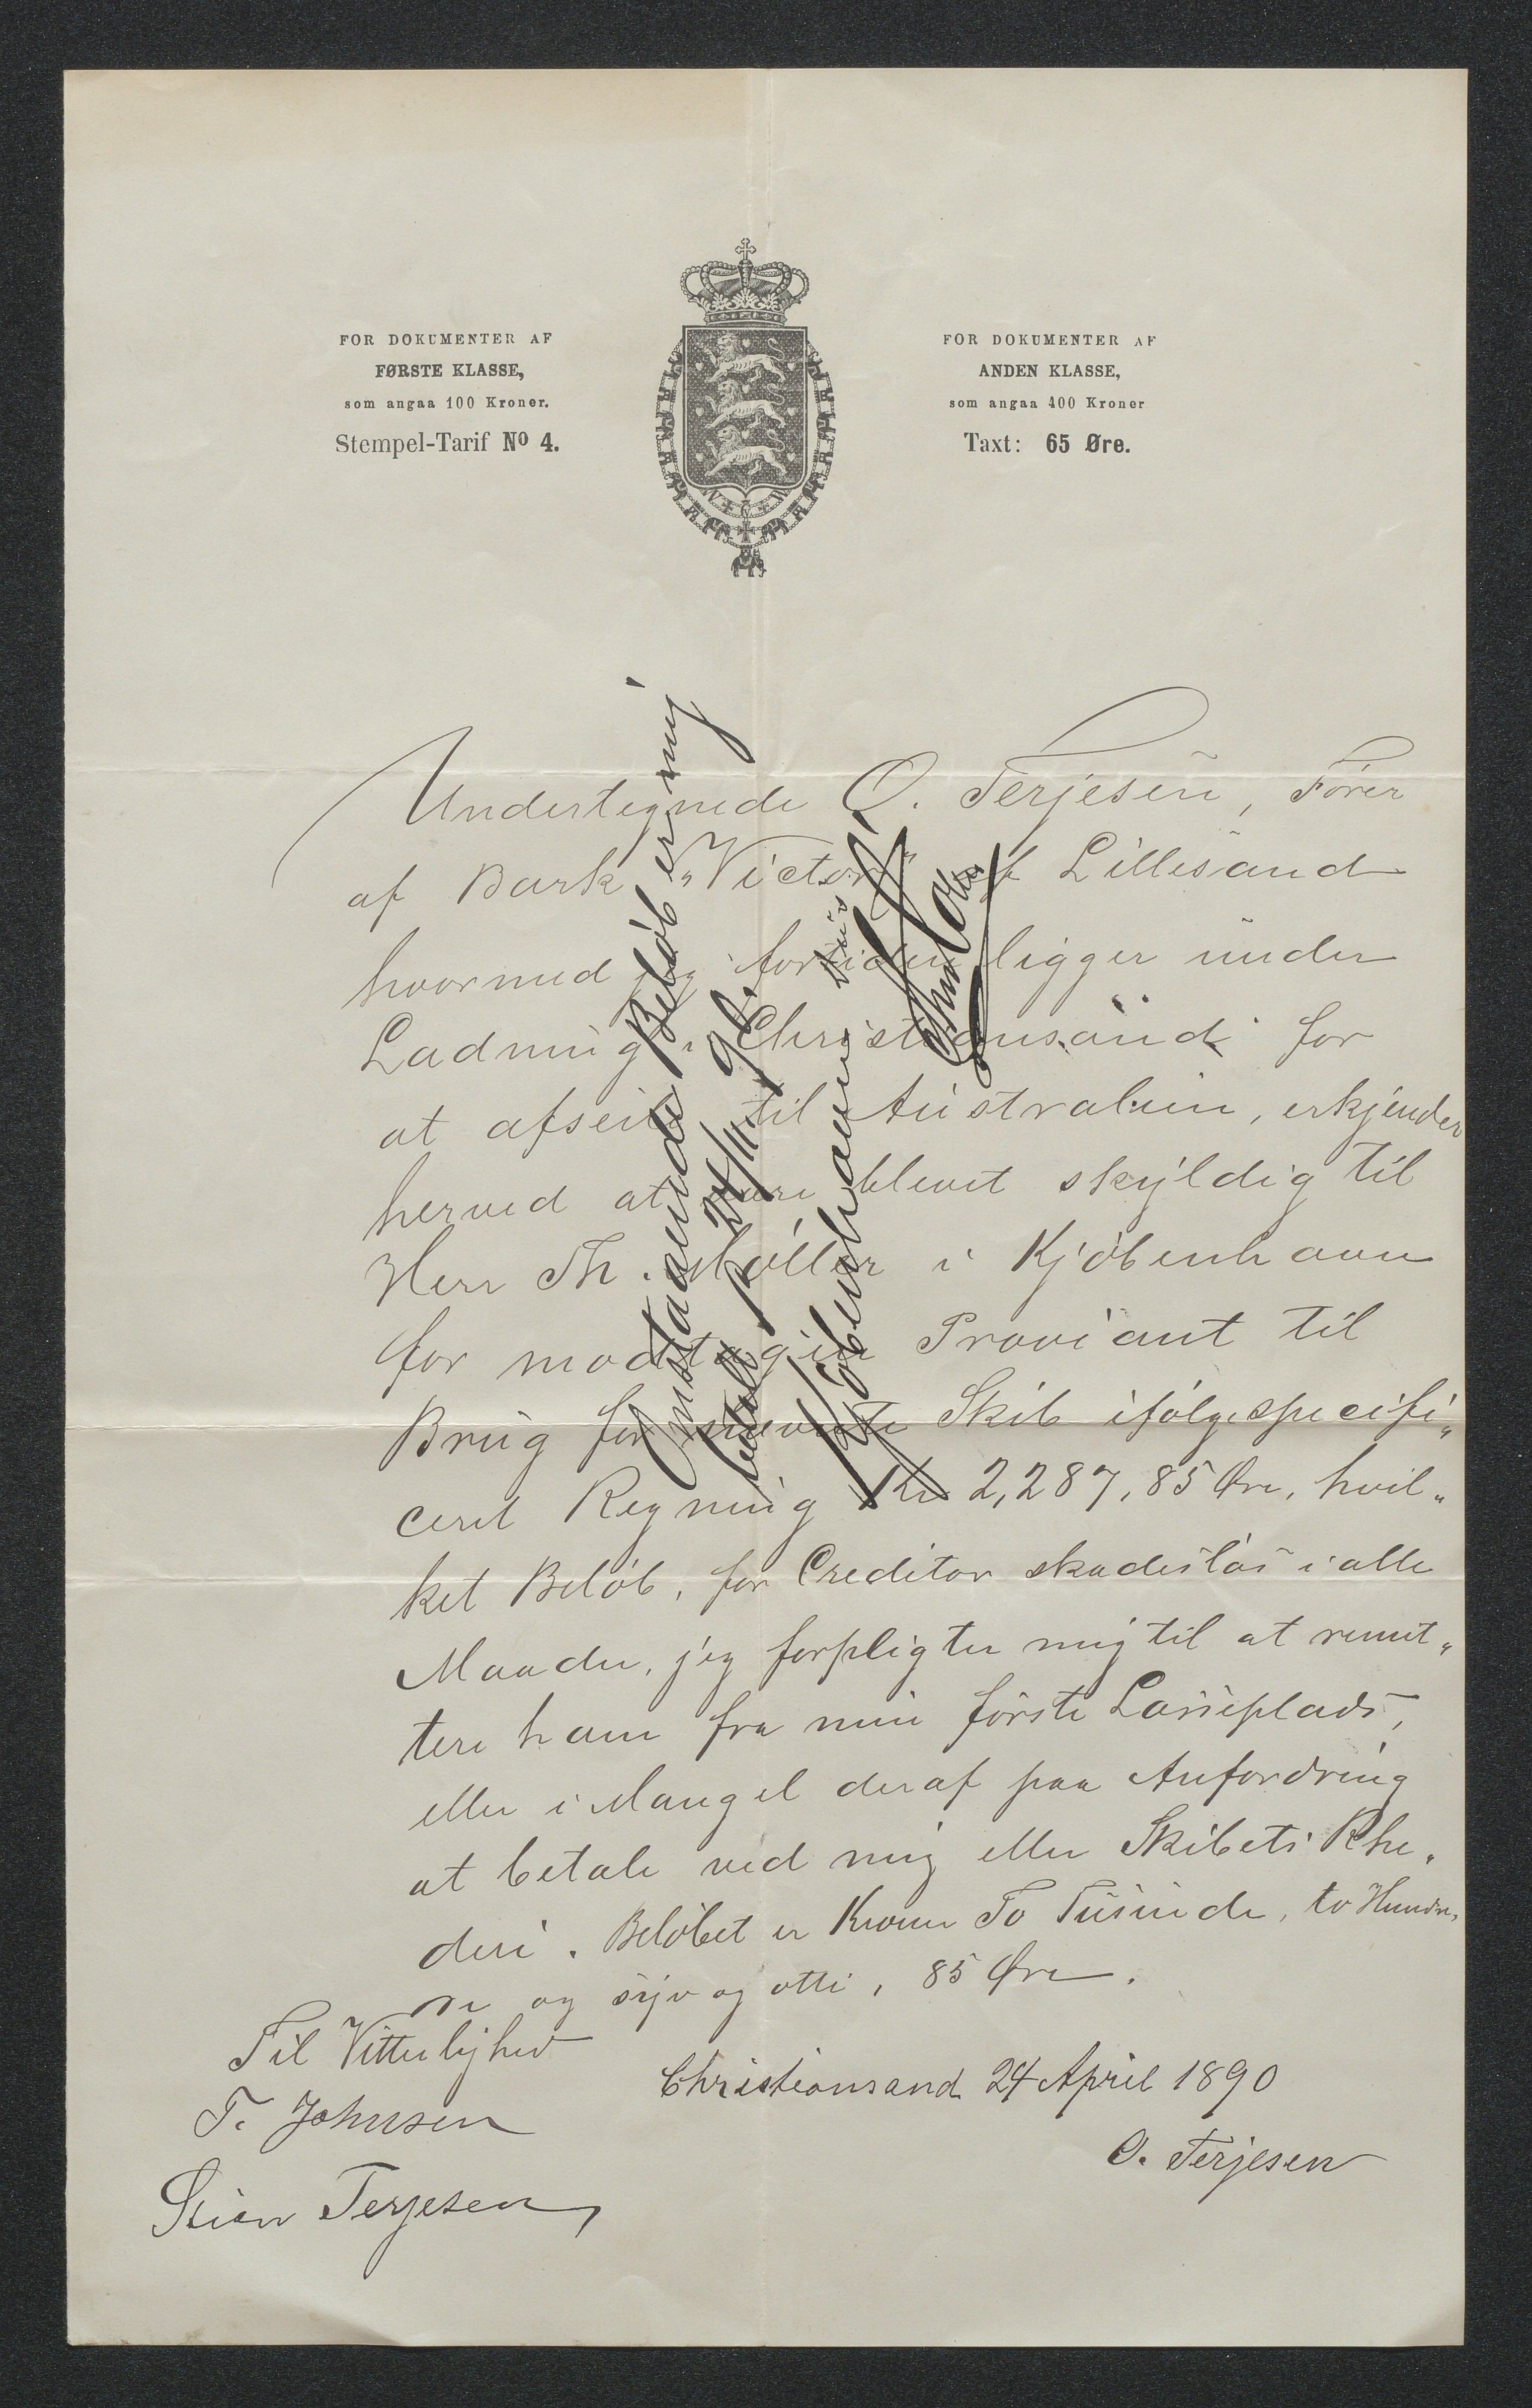 FOR DOKUMENTER AF
FØRSTE KLASSE,
som angaa 100 Kroner.
Stempel-Tarif No 4.
FOR DOKUMENTER AF
ANDEN KLASSE,
som angaa 400 Kroner
Taxt: 65 Øre.
Undertegnede O. Terjesen, Fører
af Bark "Victor" af Lillesand
hvormed jeg fortiden ligger under
Ladning i Christiansand for
at afseile til Australien, erkjender
herved at være blevet skyldig til
Herr Th. Møller i Kjøbenhavn
for modtagen Proviant til
Brug for nævnte Skib ifølge specifi„
ceret Regning Kr 2,287,85 Øre, hvil„
ket Beløb, for Creditor skadesløs i alle
Maader, jeg forpligter mig til at remit„
tere ham fra min første Losseplads,
eller i Mangel deraf paa Anfordring
at betale ved mig eller Skibets Rhe„
deri. Beløbet er Kroner To Tusinde, to Hundre„
de og syv og otti, 85 Øre.
Til Vitterlighed
T. Johnsen
Stian Terjesen,
Christiansand 24 April 1890
O. Terjesen
Omstaaende Beløb er mig
betalt p 24/11 90.
Kjøbenhavn